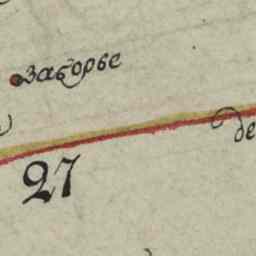 Заборье
де
27